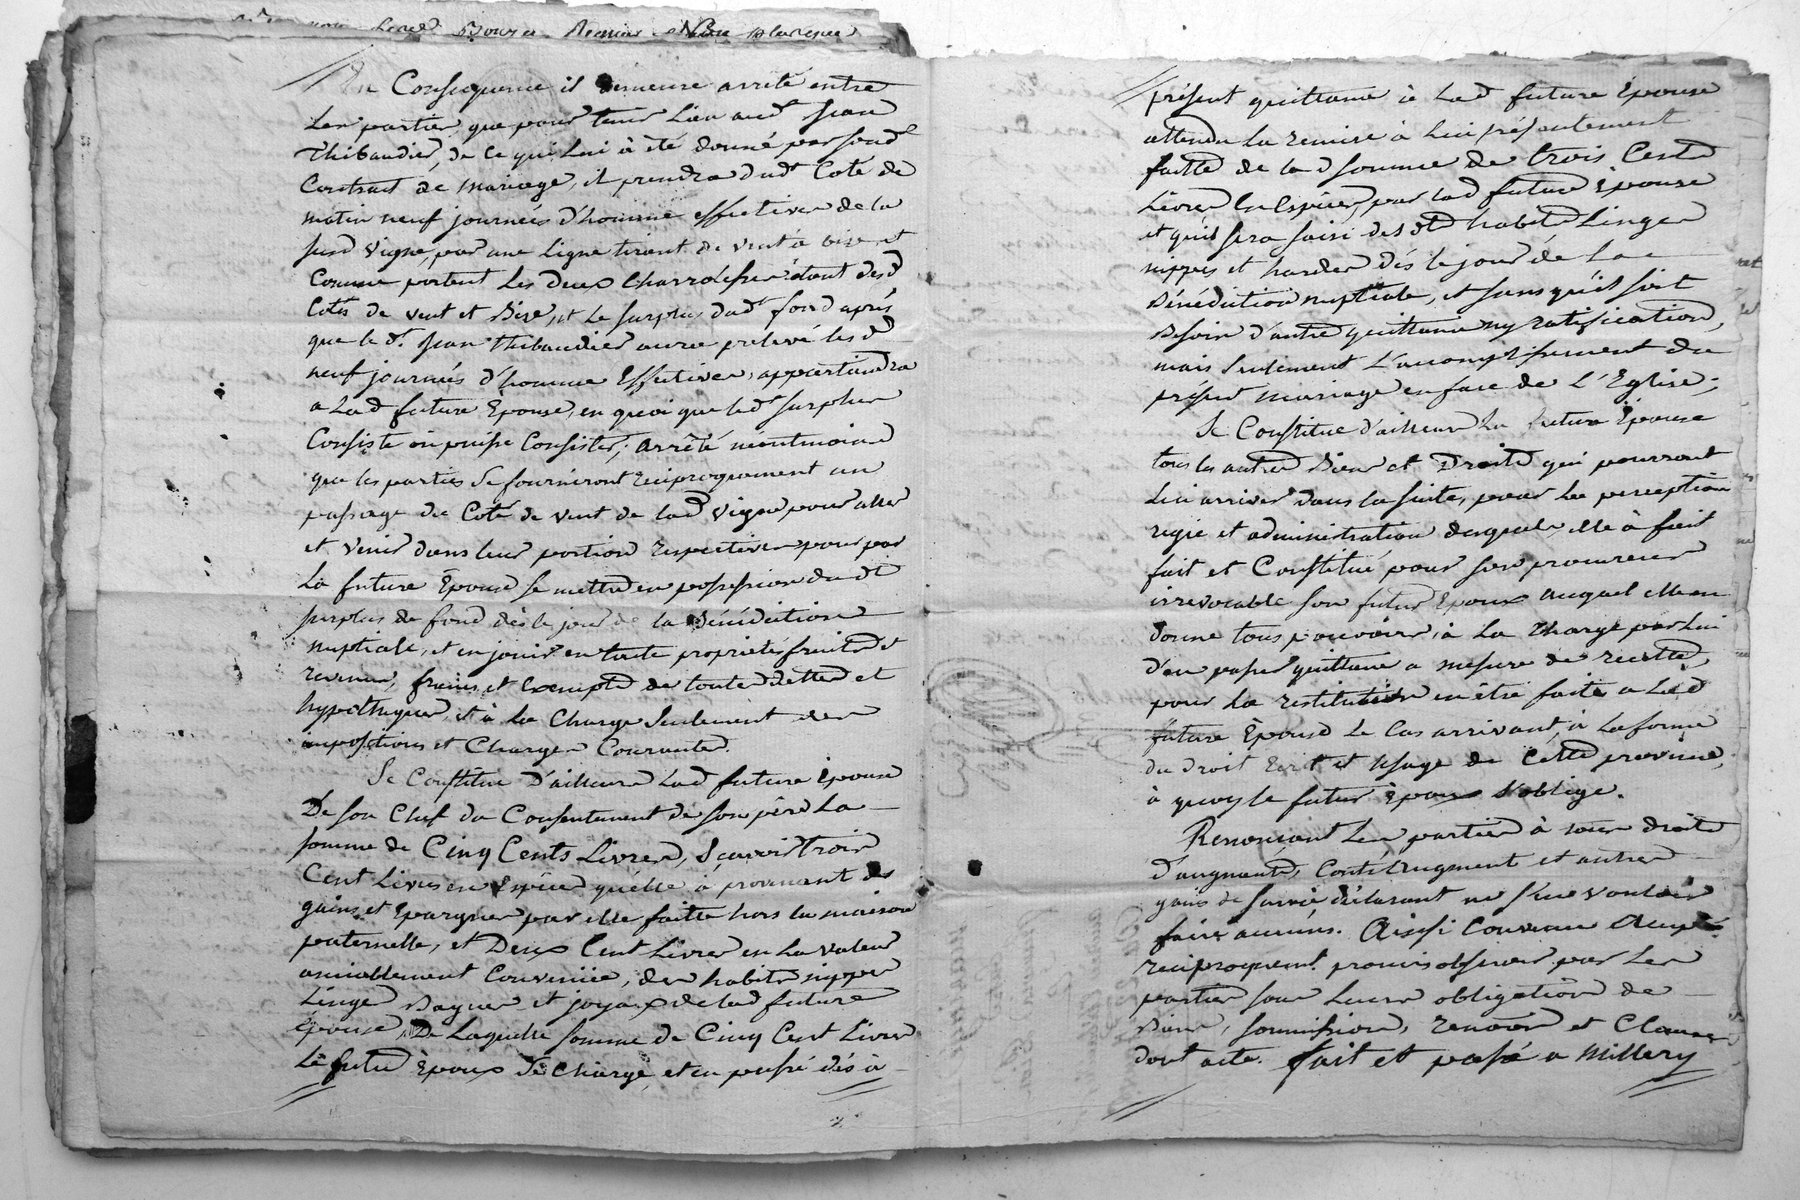 En Consequence il demeure arrêté entre
Les parties, que pour tenir Lieu aud.t Jean
Thibaudier, de ce qui Lui à été donné par sond.t
Contract de mariage, il prendra dud.t Coté de
matin neuf journées d'homme effectives de la
susd. vigne, par une Ligne tirant de vent à bize, et
Comme portent Les deux Charrolesses étant desd.
Cotés de vent et Bize, et Le surplus dud.t fond après
que le d.t Jean Thibaudier aura prelevé lesd.
neuf journées d'homme Effectives, appartiendra
a Lad. future Epouse, en quoi que led.t surplus
Consiste ou puisse Consister; arrêté néantmoins
que les parties se fourniront reciproquement un
passage du Coté de vent de lad. vigne pour aller
et venir dans leur portion respectives, pour par
La future Epouse se mettre en possession dud.t
surplus de fond dès le jour de la Bénédiction
nuptiale, et en jouir en toute propriétés fruits et
revenus, francs et Exempts de toutes dettes et
hypothèques, et à la Charge seulement des
impositions et Charges Courantes.
Se Constitue D'ailleurs Lad. future Epouse
De son Chef du Consentement de son père La
somme de Cinq Cents Livres, Sçavoir Trois
Cent Livres en Espèces qu'elle à provenant des
gains et Epargnes par elle faitte hors la maison
paternelle, et Deux Cent Livres en La valeur
amiablement Convenüe, des habits nippes
Linges Bagues et joyaux de lad. future
épouse, De Laquelle somme de Cinq Cent Livres
Le futur Epoux se Charge, et en passé dés à
présent quittance à Lad. future Epouse
attendu La remise à Lui présentement
faitte de lad. somme de trois Cents
Livres En Espèces, par lad. future Epouse
et qu'il sera saisi desd.ts habits Linges
nippes et hardes dés le jour de La
Bénédiction nuptiale, et sans qu'il soit
Besoin d'autre quittance ny ratification,
mais seulement L'accomplissement du
présent mariage en face de L'Eglise;
Se Constitue d'ailleurs La future Epouse
tous les autres Biens et Droits qui pourront
Lui arriver dans la suite, pour La perception
regie et administration desquels, elle à fait
fait et Constitué pour son procureur
irrevocable son futur Epoux auquel elle en
donne tous pouvoirs, à La charge par Lui
d'en passer quittance a mesure de recette,
pour La restitution en être faite a Lad.
future Epouse Le Cas arrivant, à La forme
du Droit Ecrit et usage de Cette province,
à quoy le futur Epoux s'oblige.
Renonçant Les parties à tous droits
D'augments, Contr'augment et autres
gains de survie déclarant ne s'en vouloir
faire aucuns. Ainsi Convenu Accepté
reciproquem.t promis observer par Les
parties sous Leurs obligations de
Biens, soumissions, renôns et Clauses
dont acte. fait et passé a Millery